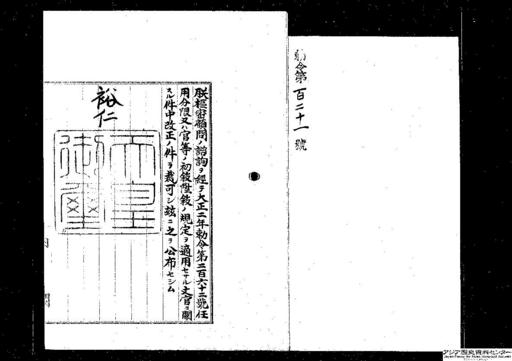 勅令第百二十一號
朕樞密顧問ノ諮詢ヲ經テ大正二年勅令第二百六十二號任
用分限又ハ官等ノ初敍陞敍ノ規定ヲ適用セサル文官ニ關
スル件中改正ノ件ヲ裁可シ玆ニ之ヲ公布セシム
裕仁
天皇御璽
内閣
アジア歴史資料センター